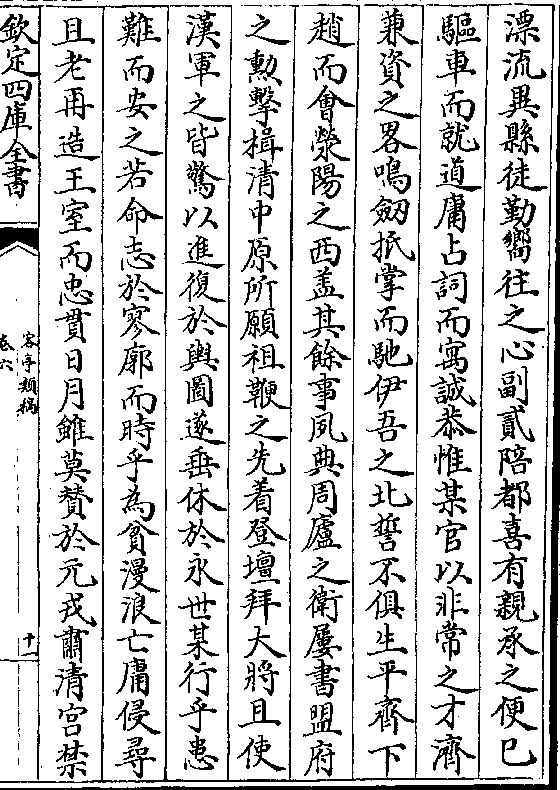 漂流異縣徒勤嚮往之心副貳陪都喜有親承之便已
驅車而就道庸占詞而寓誠恭惟某官以非常之才濟
兼資之畧鳴劔抵掌而馳伊吾之北誓不俱生平齊下
趙而會滎陽之西葢其餘事夙典周廬之衛屢書盟府
之勲擊楫清中原所願祖鞭之先着登壇拜大將且使
漢軍之皆驚以進復於輿圖遂垂休於永世某行乎患
難而安之若命志於寥廓而時乎為貧漫浪亡庸侵尋
且老再造王室而忠貫日月雖莫賛於元戎肅清宫禁
欽定四庫全書
客亭類稿
卷六
十一